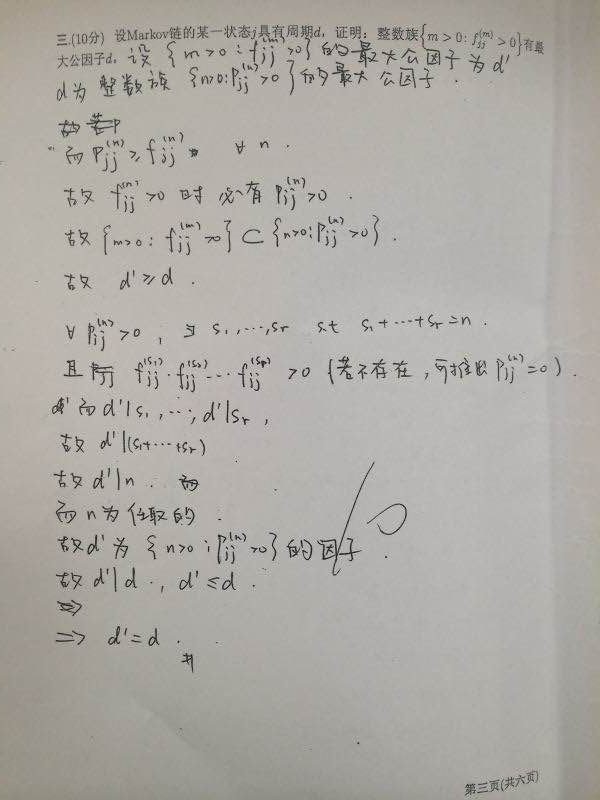 三.(10分) 设Markov链的某一状态j具有周期d，证明：整数族{m>0: f_jj^(m)>0}有最
大公因子d, 设{m>0: f_jj^(m)>0}的最大公因子为d'
d为整数族{n>0: P_jj^(n)>0}的最大公因子.
而 P_jj^(n) ≥ f_jj^(n) ∀ n.
故 f_jj^(n)>0 时 必有 P_jj^(n)>0.
故 {m>0: f_jj^(m)>0} ⊂ {n>0: P_jj^(n)>0}.
故 d' ≥ d.
∀ P_jj^(n)>0, ∃ s₁,…,sr s.t s₁+…+sr=n.
且 f_jj^(s₁)·f_jj^(s₂)…f_jj^(sr) >0 (若不存在,可推出 P_jj^(n)=0).
而 d'|s₁,…,d'|sr,
故 d'|(s₁+…+sr)
故 d'|n.
而 n 为任取的.
故d' 为 {n>0: P_jj^(n)>0} 的因子.
故 d'|d., d' ≤ d.
=> d'=d.
#
10
第三页(共六页)